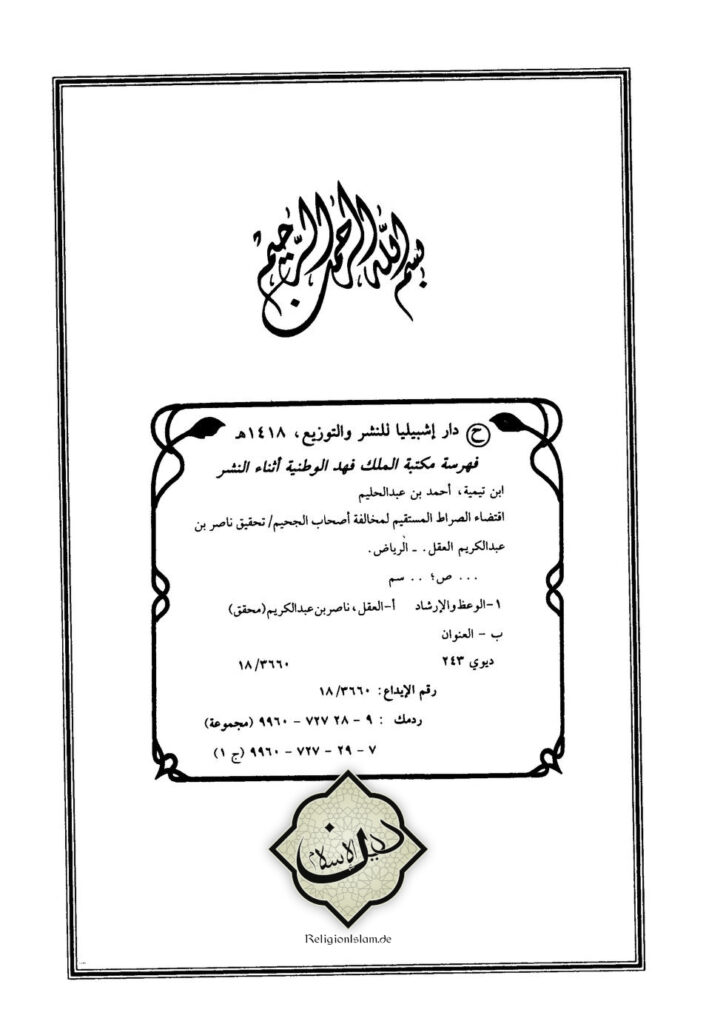 بسم الله الرحمن الرحيم
ح دار إشبيليا للنشر والتوزيع، ١٤١٨هـ
فهرسة مكتبة الملك فهد الوطنية أثناء النشر
ابن تيمية، أحمد بن عبدالحليم
اقتضاء الصراط المستقيم لمخالفة أصحاب الجحيم/ تحقيق ناصر بن
عبدالكريم العقل. ـ الرياض.
... ص؛ .. سم
١-الوعظ والإرشاد أ-العقل، ناصر بن عبدالكريم (محقق)
ب - العنوان
ديوي ٢٤٣ ١٨/٣٦٦٠
رقم الإيداع: ١٨/٣٦٦٠
ردمك : ٩ - ٢٨ ٧٢٧ - ٩٩٦٠ (مجموعة)
٧ - ٢٩ - ٧٢٧ - ٩٩٦٠ (ج ١)
دين الإسلام
ReligionIslam.de